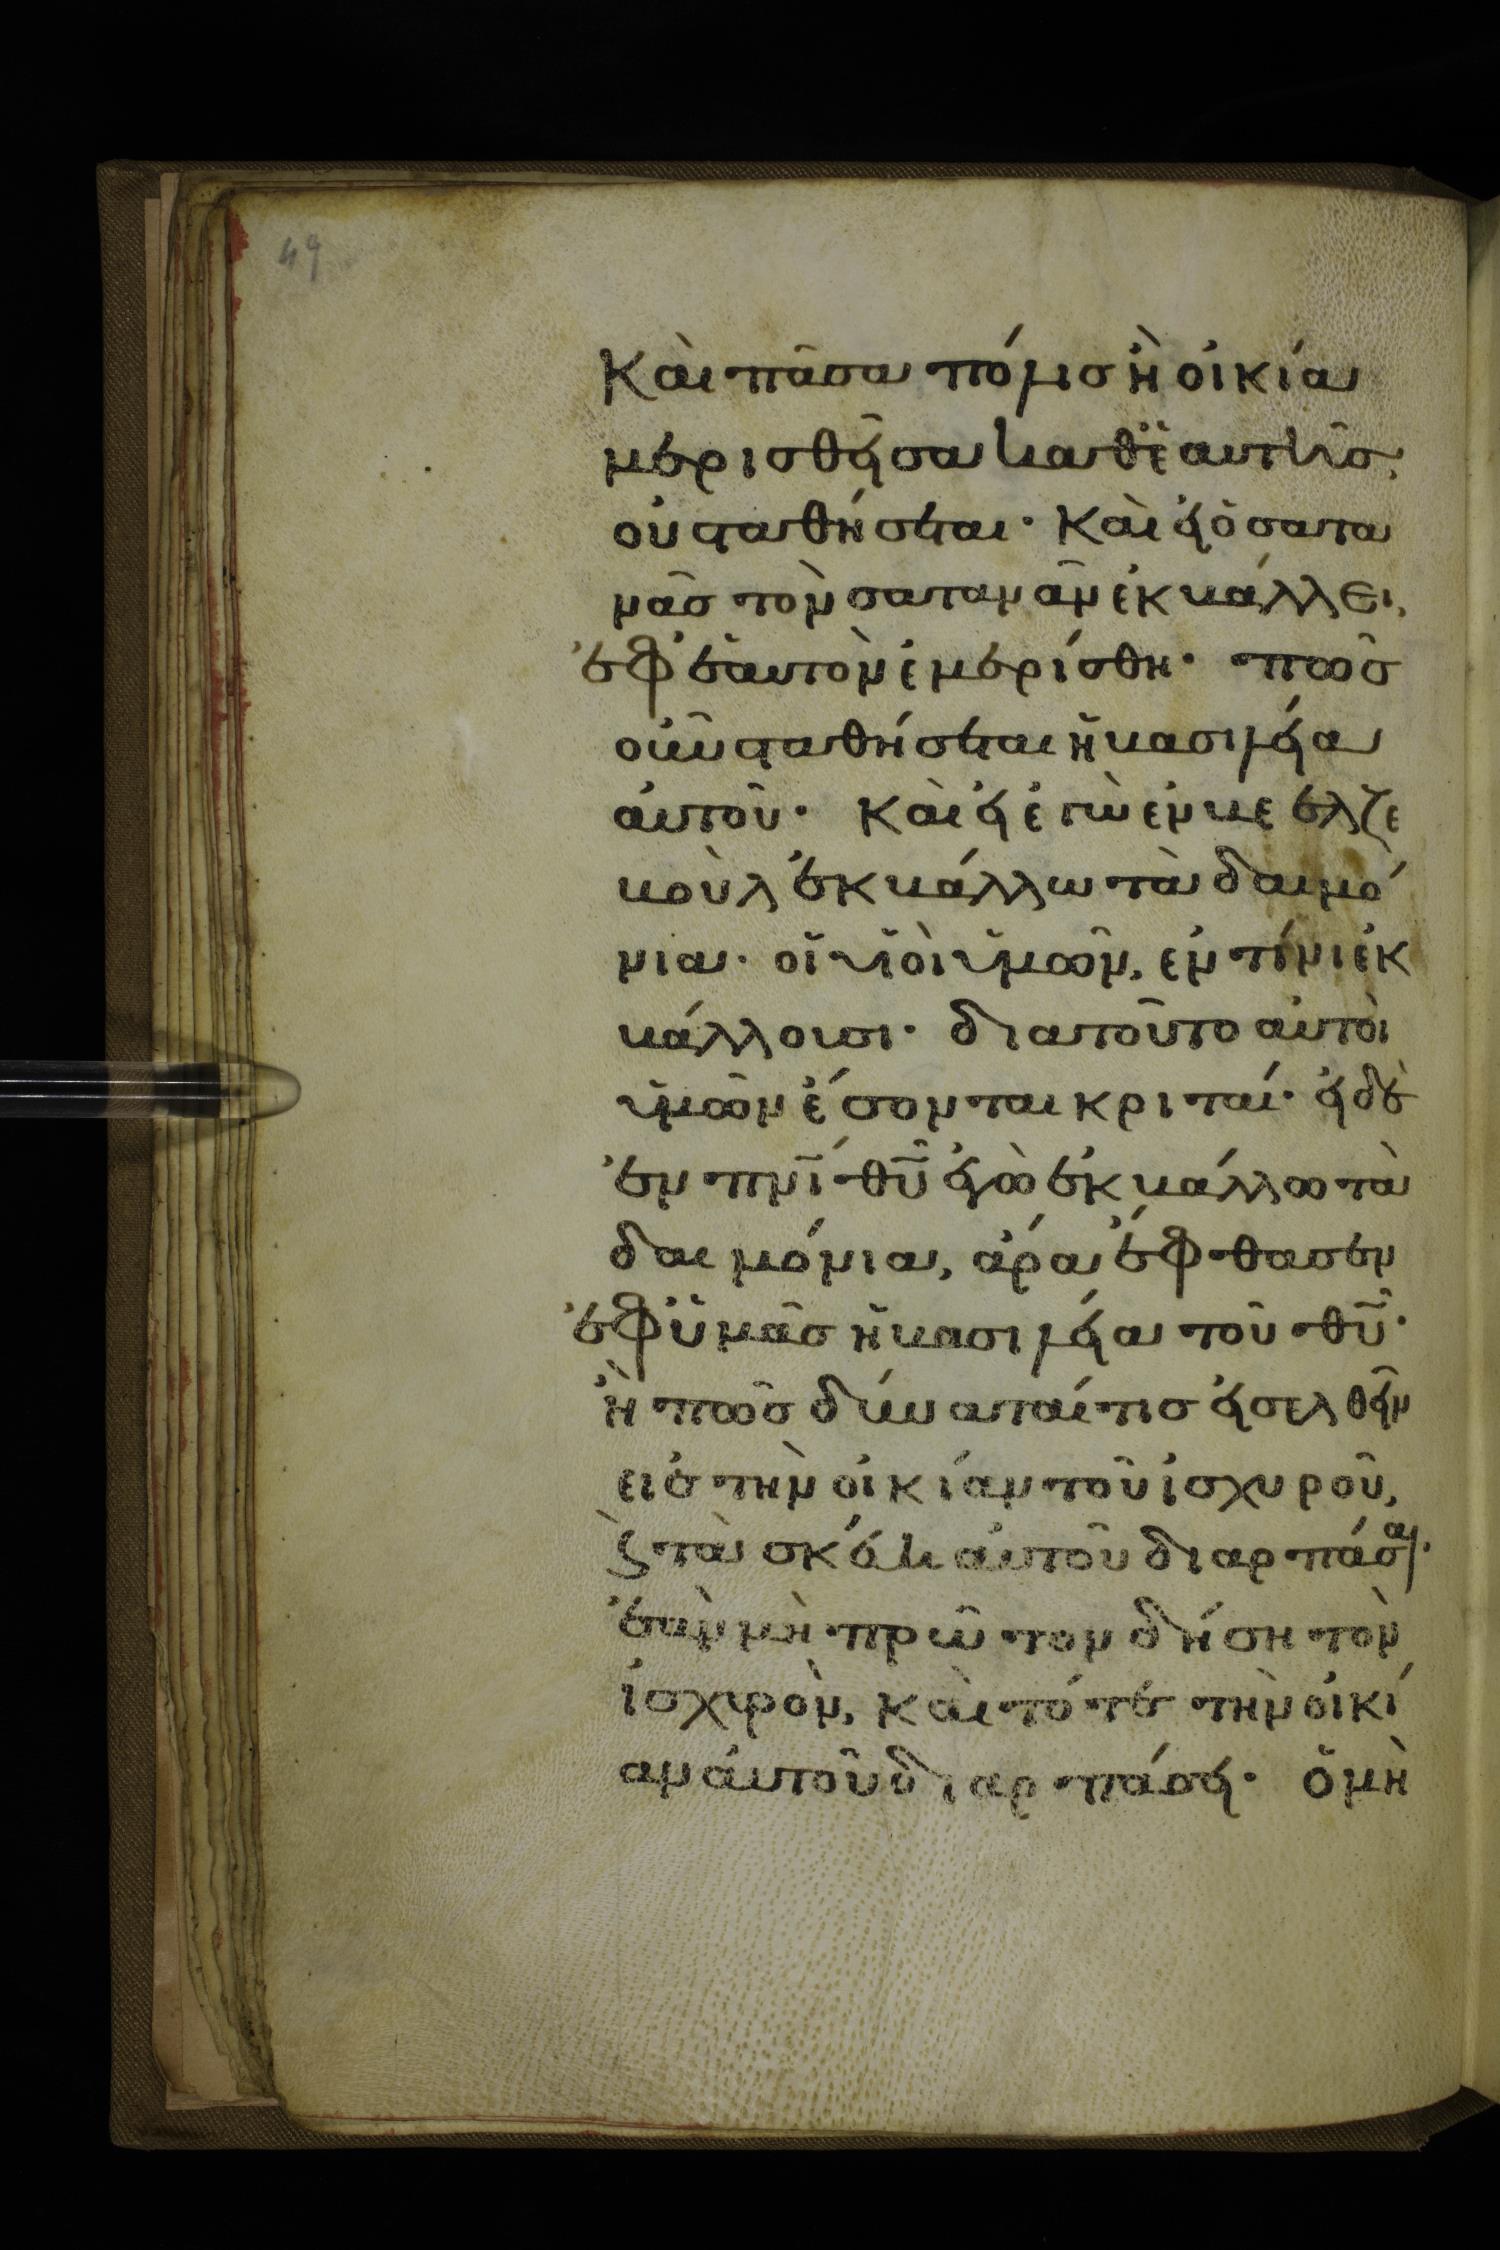 49
Καὶ πᾶσα πόλις ἢ οἰκία
μερισθεῖσα καθ ἑαυτῆς,
οὐ σταθήσεται· Καὶ εἰ ὁ σατα
νᾶς τὸν σατανᾶν ἐκβάλλει,
ἐφ ἑαυτὸν ἐμερίσθη· πῶς
οὖν σταθήσεται ἡ βασιλεία
αὐτοῦ· Καὶ εἰ ἐγὼ ἐν βεελζε
βοὺλ ἐκβάλλω τὰ δαιμό
νια· οἱ υἱοὶ ὑμῶν, ἐν τίνι ἐκ
βάλλουσι· διατοῦτο αὐτοὶ
ὑμῶν ἔσονται κριταί· εἰ δὲ
ἐν πνι θυ ἐγὼ ἐκβάλλω τὰ
δαιμόνια, ἄρα ἔφθασεν
ἐφ ὑμᾶς ἡ βασιλεία τοῦ θυ·
ἢ πῶς δύναταί τις εἰσελθεῖν
εἰς τὴν οἰκίαν τοῦ ἰσχυροῦ,
ϗ τὰ σκεύη αὐτοῦ διαρπάσαι·
ἐὰν μὴ πρῶτον δήση τὸν
ἰσχυρὸν, καὶ τότε τὴν οἰκί
αν αὐτοῦ διαρπάσει· ὁ μὴ